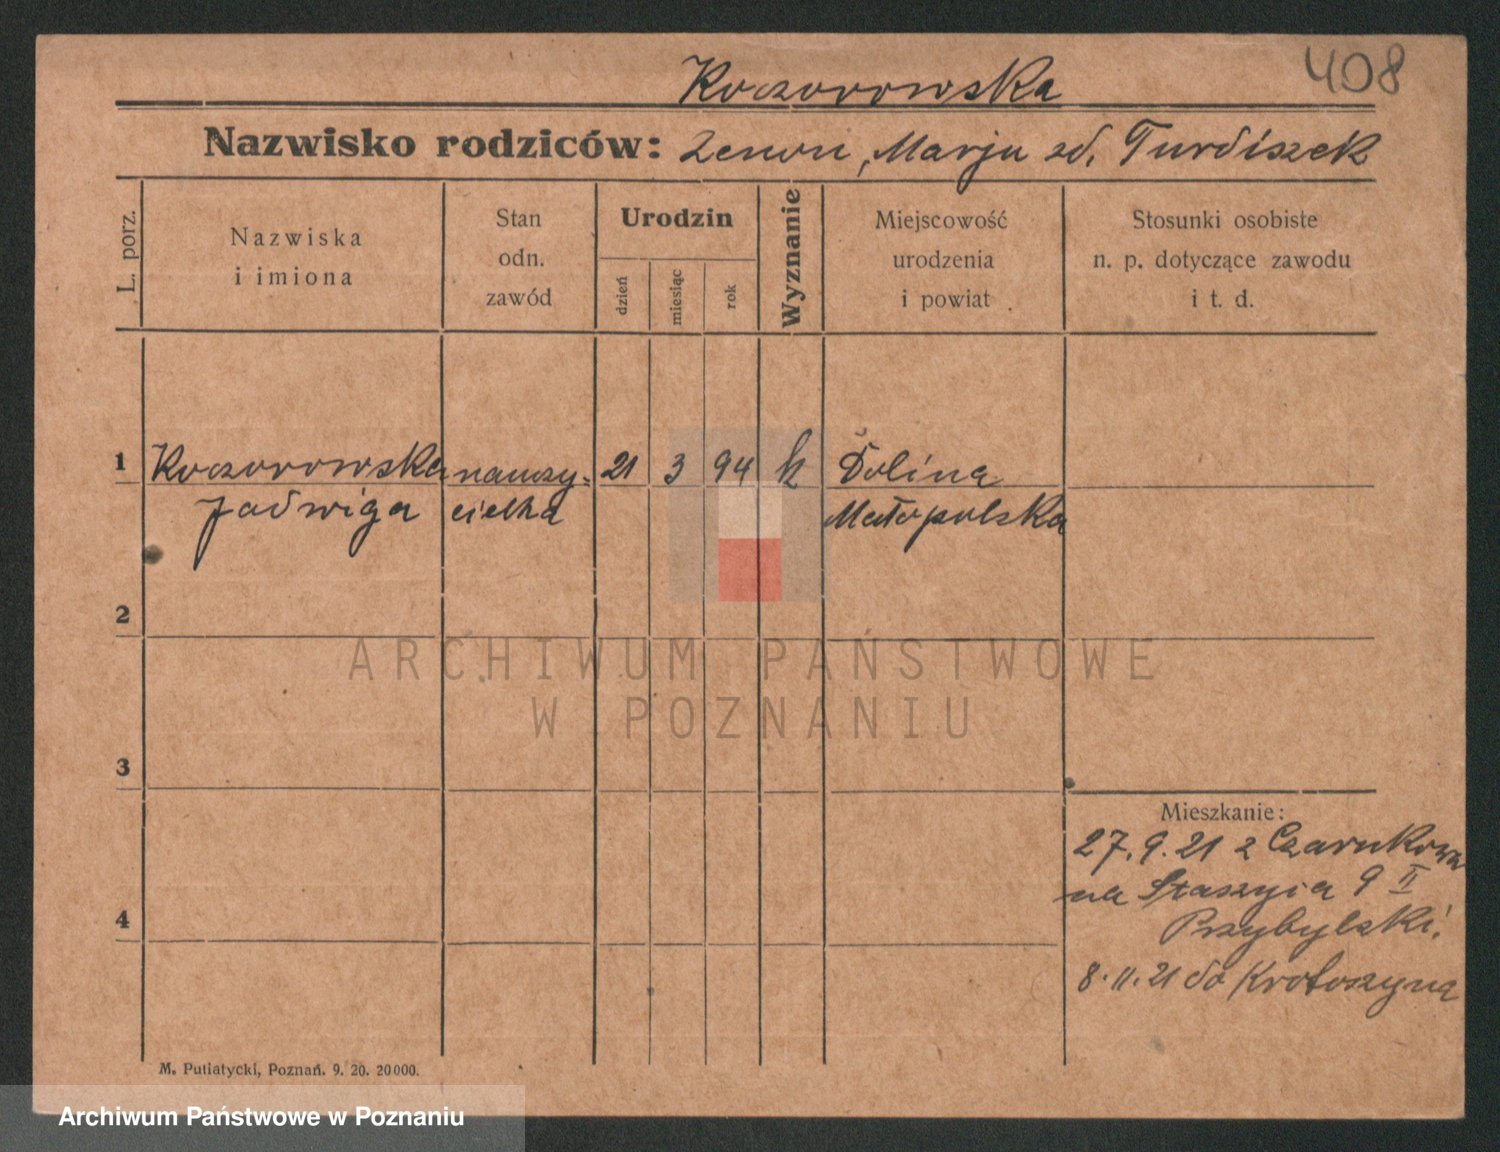 408
Koczorowska
Nazwisko rodziców: Zenon, Marja zd. Turdiszek
L. porz.
Nazwiska
i imiona
Stan
odn.
zawód
Urodzin
dzień
miesiąc
rok
Wyznanie
Miejscowość
urodzenia
i powiat
Stosunki osobiste
n. p. dotyczące zawodu
i t. d.
1 Koczorowska nauczy- 21 3 94 k Dolina
Jadwiga cielka Małopolska
2
3
4
Mieszkanie:
27.9.21 z Czarnkowa
na Staszyca 9 II
Przybylski.
8.11.21 do Krotoszyna
M. Putiatycki, Poznań. 9. 20. 20000.
ARCHIWUM PAŃSTWOWE
W POZNANIU
Archiwum Państwowe w Poznaniu